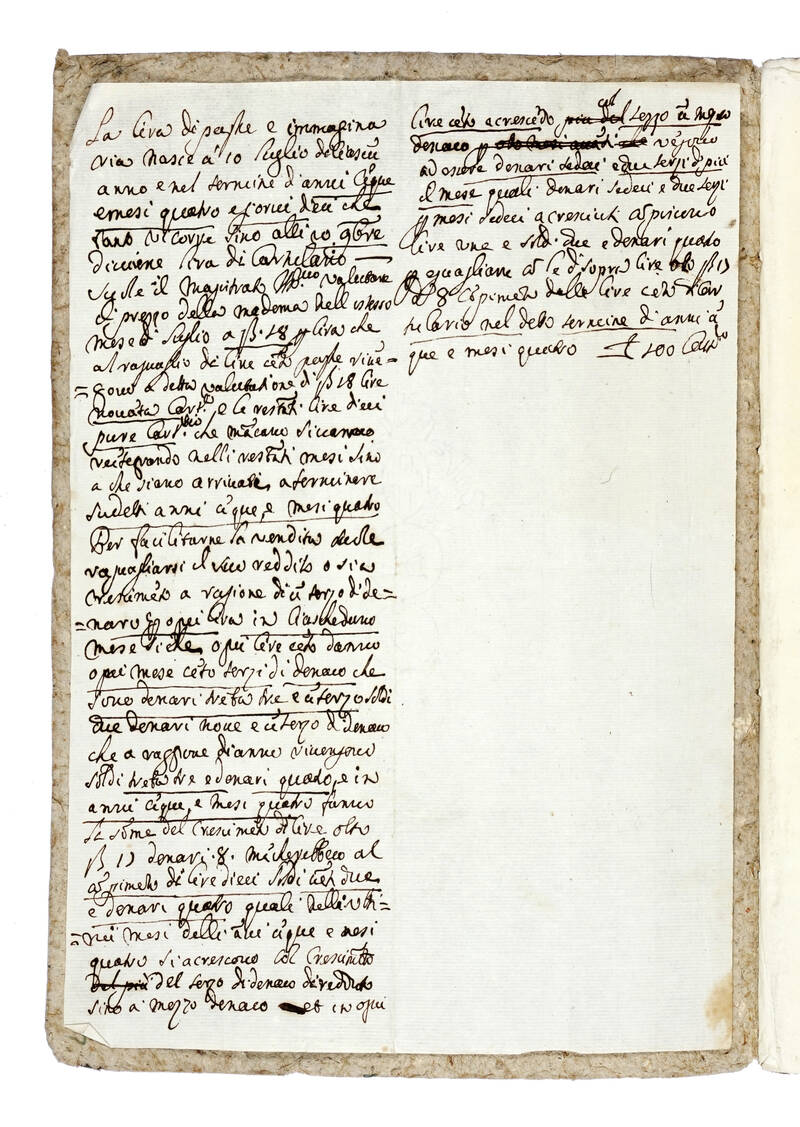 La lira di paghe e immagina
ria nasce a' 10 luglio di ciascu
anno e nel termine d'anni cīque
e mesi quatro e giorni dieci che
sono vicorpe sino alli 10 9bre
diviene lira di Cartulario —
Suole il Magistrato valutare
il prezzo della medema nell istesso
mese di luglio a ß. 18 p lira che
al raguaglio di lire cēto paghe vine=
=gono a detta valutatione di ß 18 lire
novāta Cart.rio e le restāti lire dieci
pure Cart.rio che mācano si vanno
nelli restāti mesi sino
a che siano arrivate a terminare
sudetti anni cīque, e mesi quatro
Per facilitarne la vendita suole
raguagliarsi il suo reddito o sia
crescimēto a ragione di ū terzo di de=
=naro p ogni lira in ciascheduno
mese siche ogni lire cēto danno
ogni mese cēto terzi di denaro che
sono denari trēta tre e ū terzo soldi
due denari nove e ū terzo di denaro
che a raggione d'anno vinengono
soldi trēta tre e denari quatro, e in
anni cīque, e mesi quatro fanno
la sōma del crescimēto di lire otto
ß 17 denari .8. mācherebbero al
cōpimēto di lire dieci soldi due
e denari quatro quali nelli ulti=
=mi mesi delli āni cīque e mesi
quatro si acrescono col crescimēto
del più del terzo di denaro di reddito
sino a mezzo denaro et in ogni
lire cēto acrescēdo più del col terzo ū mezzo
denaro p vēgono
ad essere denari sedeci e due terzi di più
il mese quali denari sedeci e due terzi
p mesi sedeci acresciuti cōpiscono
lire una e soldi due e denari quatro
p eguagliare cō le di sopra lire otto ß 17
d. 8 Cōpimēto delle lire cēto di Car
tulario nel detto termine di anni cī
que e mesi quatro £ 100 Cart.rio